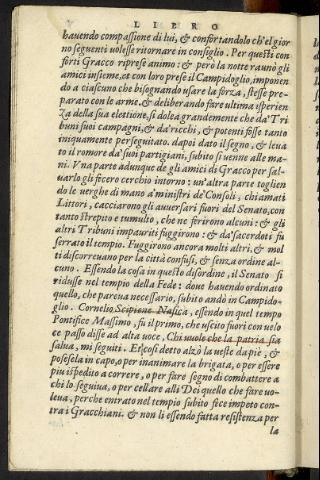 LIBRO
havendo compassione di lui, & confortandolo ch'el gior
no seguenti volesse ritornare in consiglio. Per questi con
forti Gracco riprese animo: & però la notte raunò gli
amici insieme, et con loro prese il Campidoglio, imponen
do a ciascuno che bisognando usare la forza, stesse pre-
parato con le arme. & deliberando fare ultima esperien
za della sua elettione, si dolea grandemente che da' Tri
buni suoi campagni, & da' ricchi, & potenti fosse tanto
iniquamente perseguitato. dapoi dato il segno, & leva
to il romore da' suoi partigiani, subito si venne alle ma-
ni. Vna parte adunque de gli amici di Gracco per sal-
uarlo gli fecero cerchio intorno: un'altra parte toglien
do le verghe di mano a' ministri de' Consoli, chiamati
Littori, cacciarono gli auuersari fuori del Senato, con
tanto strepito e tumulto, che ne ferirono alcuni: & gli
altri Tribuni impauriti fuggirono: & da' sacerdoti fu
serrato il tempio. Fuggirono ancora molti altri, & mol
ti discorreuano per la città confusi, & senza ordine al-
cuno. Essendo la cosa in questo disordine, il Senato si
ridusse nel tempio della Fede: doue hauendo ordinato
quello, che pareua necessario, subito andò in Campido-
glio. Cornelio Scipione Nasica, essendo in quel tempo
Pontifice Massimo, fu il primo, che uscito fuori con velo
ce passo disse ad alta uoce, Chi uuole che la patria sia
salua, mi seguiti. Et così detto alzò la ueste da piè, &
posesela in capo, o per inanimare la brigata, o per essere
piu ispedito a correre, o per fare segno di combattere a
chi lo seguiua, o per cellare alli Dei quello che fare uo-
leua, perche entrato nel tempio subito fece impeto con-
tra i Gracchiani. & non li essendo fatta resistenza per
la